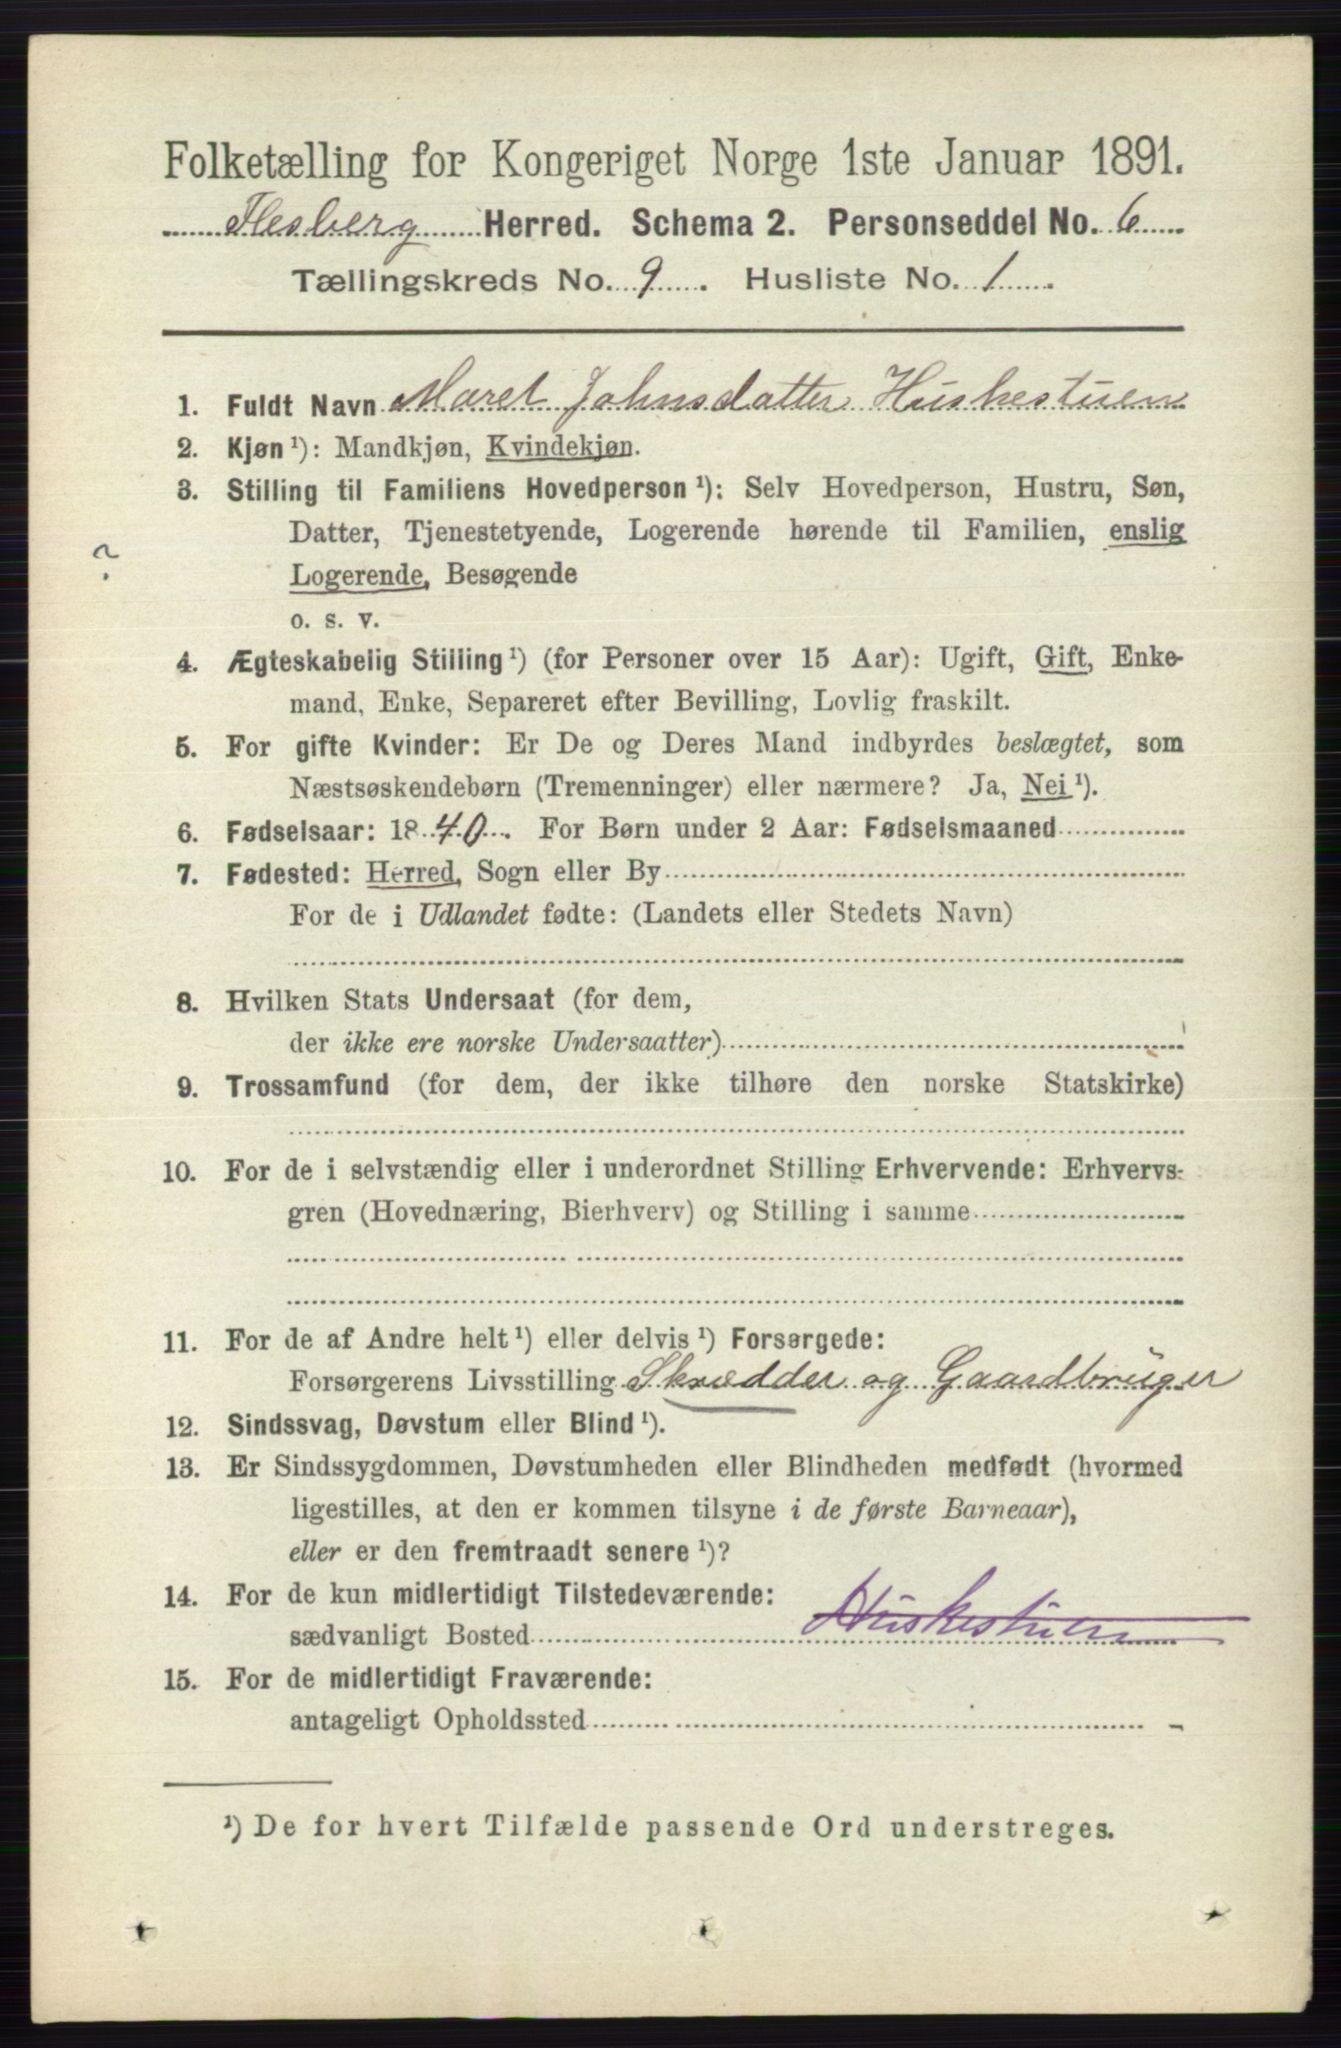 Folketælling for Kongeriget Norge 1ste Januar 1891.
Flesberg Herred. Schema 2. Personseddel No. 6
Tællingskreds No. 9. Husliste No. 1.
1. Fuldt Navn Maret Johnsdatter Huskestuen
2. Kjøn ¹): Mandkjøn, Kvindekjøn.
3. Stilling til Familiens Hovedperson ¹): Selv Hovedperson, Hustru, Søn,
Datter, Tjenestetyende, Logerende hørende til Familien, enslig
?
Logerende, Besøgende
o. s. v.
4. Ægteskabelig Stilling ¹) (for Personer over 15 Aar): Ugift, Gift, Enke-
mand, Enke, Separeret efter Bevilling, Lovlig fraskilt.
5. For gifte Kvinder: Er De og Deres Mand indbyrdes beslægtet, som
Næstsøskendebørn (Tremenninger) eller nærmere? Ja, Nei ¹).
6. Fødselsaar: 1840. For Børn under 2 Aar: Fødselsmaaned
7. Fødested: Herred, Sogn eller By
For de i Udlandet fødte: (Landets eller Stedets Navn)
8. Hvilken Stats Undersaat (for dem,
der ikke ere norske Undersaatter)
9. Trossamfund (for dem, der ikke tilhøre den norske Statskirke)
10. For de i selvstændig eller i underordnet Stilling Erhvervende: Erhvervs-
gren (Hovednæring, Bierhverv) og Stilling i samme
11. For de af Andre helt ¹) eller delvis ¹) Forsørgede:
Forsørgerens Livsstilling Skrædder og Gaardbruger
12. Sindssvag, Døvstum eller Blind ¹).
13. Er Sindssygdommen, Døvstumheden eller Blindheden medfødt (hvormed
ligestilles, at den er kommen tilsyne i de første Barneaar),
eller er den fremtraadt senere ¹)?
14. For de kun midlertidigt Tilstedeværende:
sædvanligt Bosted Huskestuen
15. For de midlertidigt Fraværende:
antageligt Opholdssted
¹) De for hvert Tilfælde passende Ord understreges.